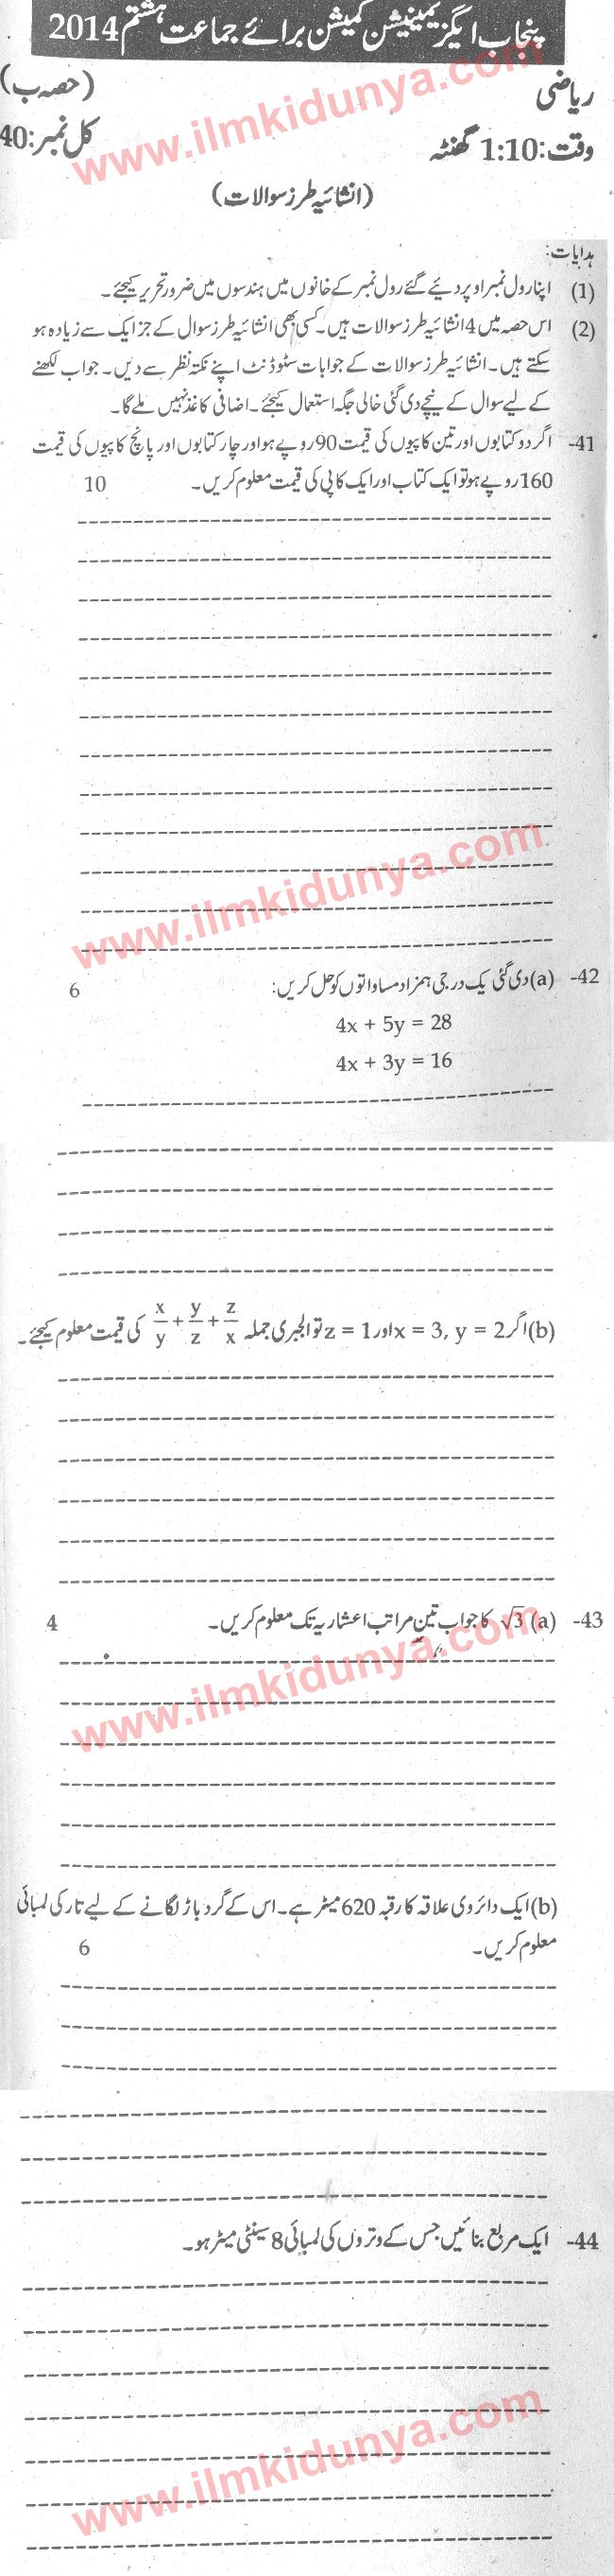 پنجاب ایگزیمینیشن کمیشن برائے جماعت ہشتم 2014
ریاضی (حصہ ب)
وقت: 1:10 گھنٹہ کل نمبر: 40
www.ilmkidunya.com
(انشائیہ طرز سوالات)
ہدایات:
(1) اپنا رول نمبر اوپر دئیے گئے رول نمبر کے خانوں میں ہندسوں میں ضرور تحریر کیجئے۔
(2) اس حصہ میں 4 انشائیہ طرز سوالات ہیں۔ کسی بھی انشائیہ طرز سوال کے جز ایک سے زیادہ ہو
سکتے ہیں۔ انشائیہ طرز سوالات کے جوابات سٹوڈنٹ اپنے نکتہ نظر سے دیں۔ جواب لکھنے
کے لیے سوال کے نیچے دی گئی خالی جگہ استعمال کیجئے۔ اضافی کاغذ نہیں ملے گا۔
41- اگر دو کتابوں اور تین کاپیوں کی قیمت 90 روپے ہو اور چار کتابوں اور پانچ کاپیوں کی قیمت
160 روپے ہو تو ایک کتاب اور ایک کاپی کی قیمت معلوم کریں۔ 10
www.ilmkidunya.com
42- (a) دی گئی یک درجی ہمزاد مساواتوں کو حل کریں: 6
4x + 5y = 28
4x + 3y = 16
(b) اگر x = 3, y = 2 اور z = 1 تو الجبری جملہ x/y + y/z + z/x کی قیمت معلوم کیجئے۔
43- (a) √3 کا جواب تین مراتب اعشاریہ تک معلوم کریں۔ 4
www.ilmkidunya.com
(b) ایک دائروی علاقہ کا رقبہ 620 میٹر ہے۔ اس کے گرد باڑ لگانے کے لیے تار کی لمبائی
معلوم کریں۔ 6
44- ایک مربع بنائیں جس کے وتروں کی لمبائی 8 سینٹی میٹر ہو۔
www.ilmkidunya.com